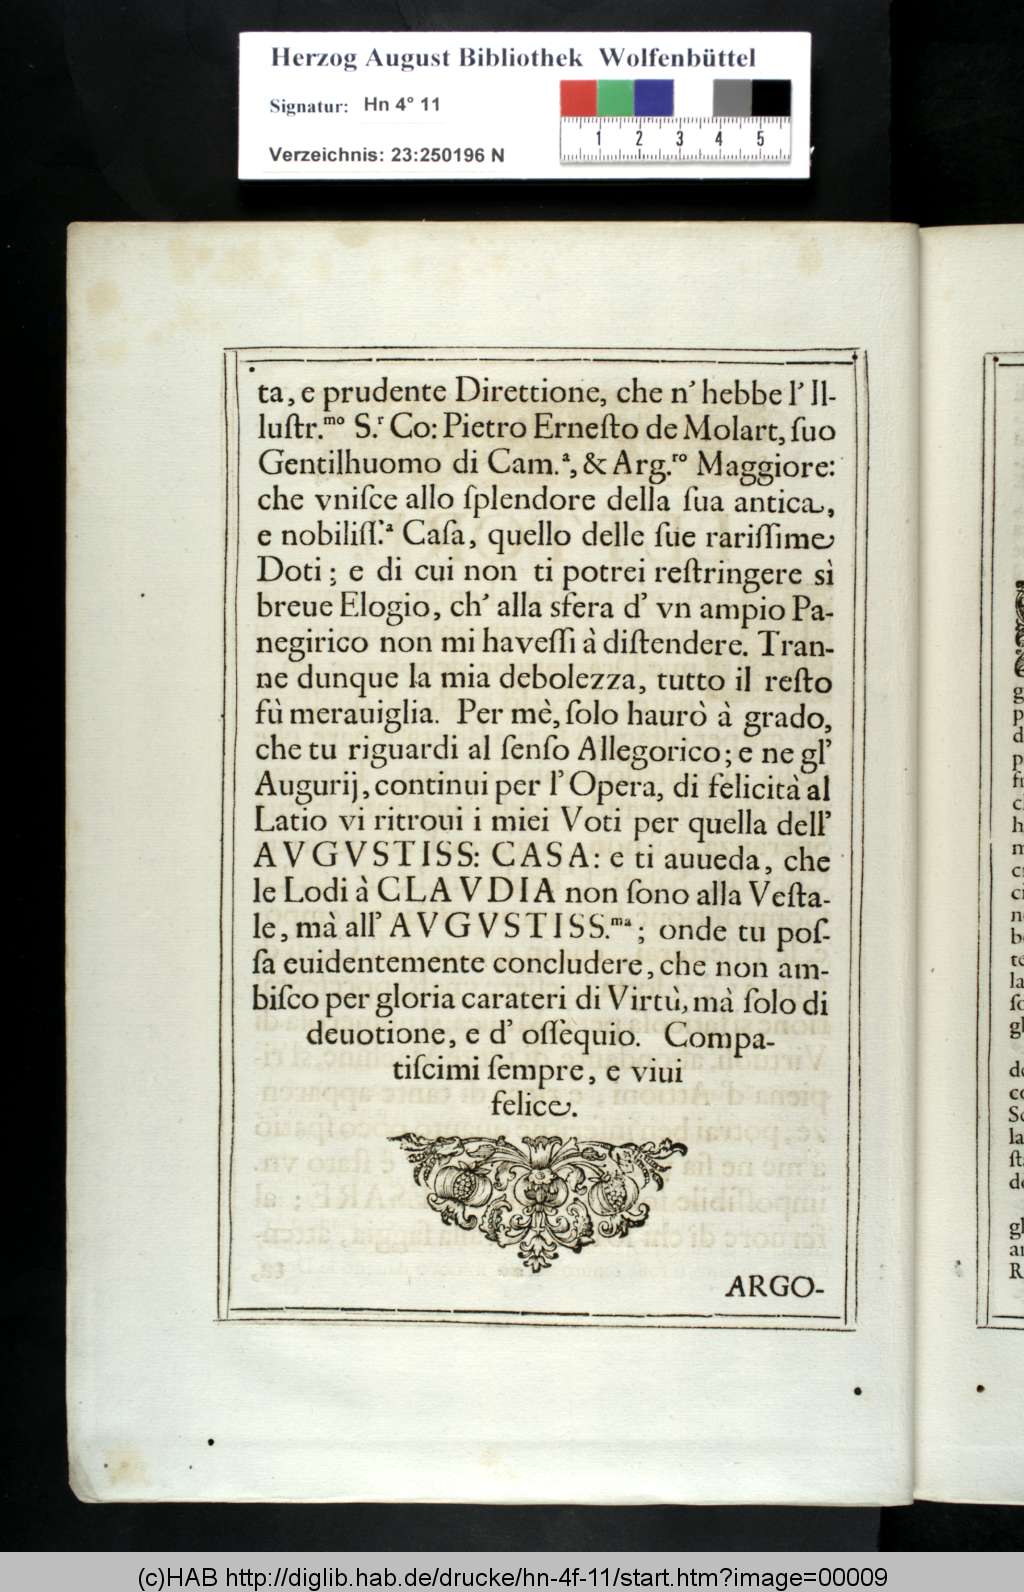 Herzog August Bibliothek Wolfenbüttel
Signatur: Hn 4° 11
1 2 3 4 5
Verzeichnis: 23:250196 N
ta, e prudente Direttione, che n' hebbe l' Il-
luſtr.mo S.r Co: Pietro Erneſto de Molart, ſuo
Gentilhuomo di Cam.a, & Arg.ro Maggiore:
che vniſce allo ſplendore della ſua antica,
e nobiliſſ.a Caſa, quello delle ſue rariſſime
Doti; e di cui non ti potrei reſtringere sì
breue Elogio, ch' alla sfera d' vn ampio Pa-
negirico non mi haveſſi à diſtendere. Tran-
ne dunque la mia debolezza, tutto il reſto
fù merauiglia. Per mè, ſolo haurò à grado,
che tu riguardi al ſenſo Allegorico; e ne gl'
Augurij, continui per l' Opera, di felicità al
Latio vi ritroui i miei Voti per quella dell'
AVGVSTISS: CASA: e ti auueda, che
le Lodi à CLAVDIA non ſono alla Veſta-
le, mà all' AVGVSTISS.ma; onde tu poſ-
ſa euidentemente concludere, che non am-
biſco per gloria carateri di Virtù, mà ſolo di
deuotione, e d' oſſèquio. Compa-
tiſcimi ſempre, e viui
felice.
ARGO-
(c)HAB http://diglib.hab.de/drucke/hn-4f-11/start.htm?image=00009